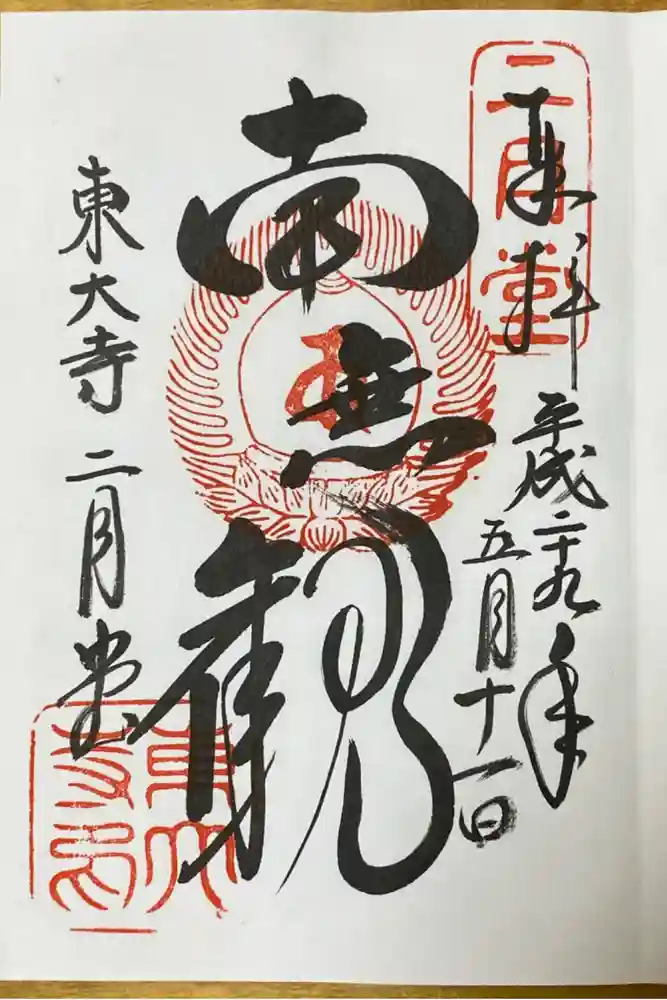 二月堂
奉拝
平成二十九年
五月十一日
南無観
東大寺 二月堂
東大
寺印